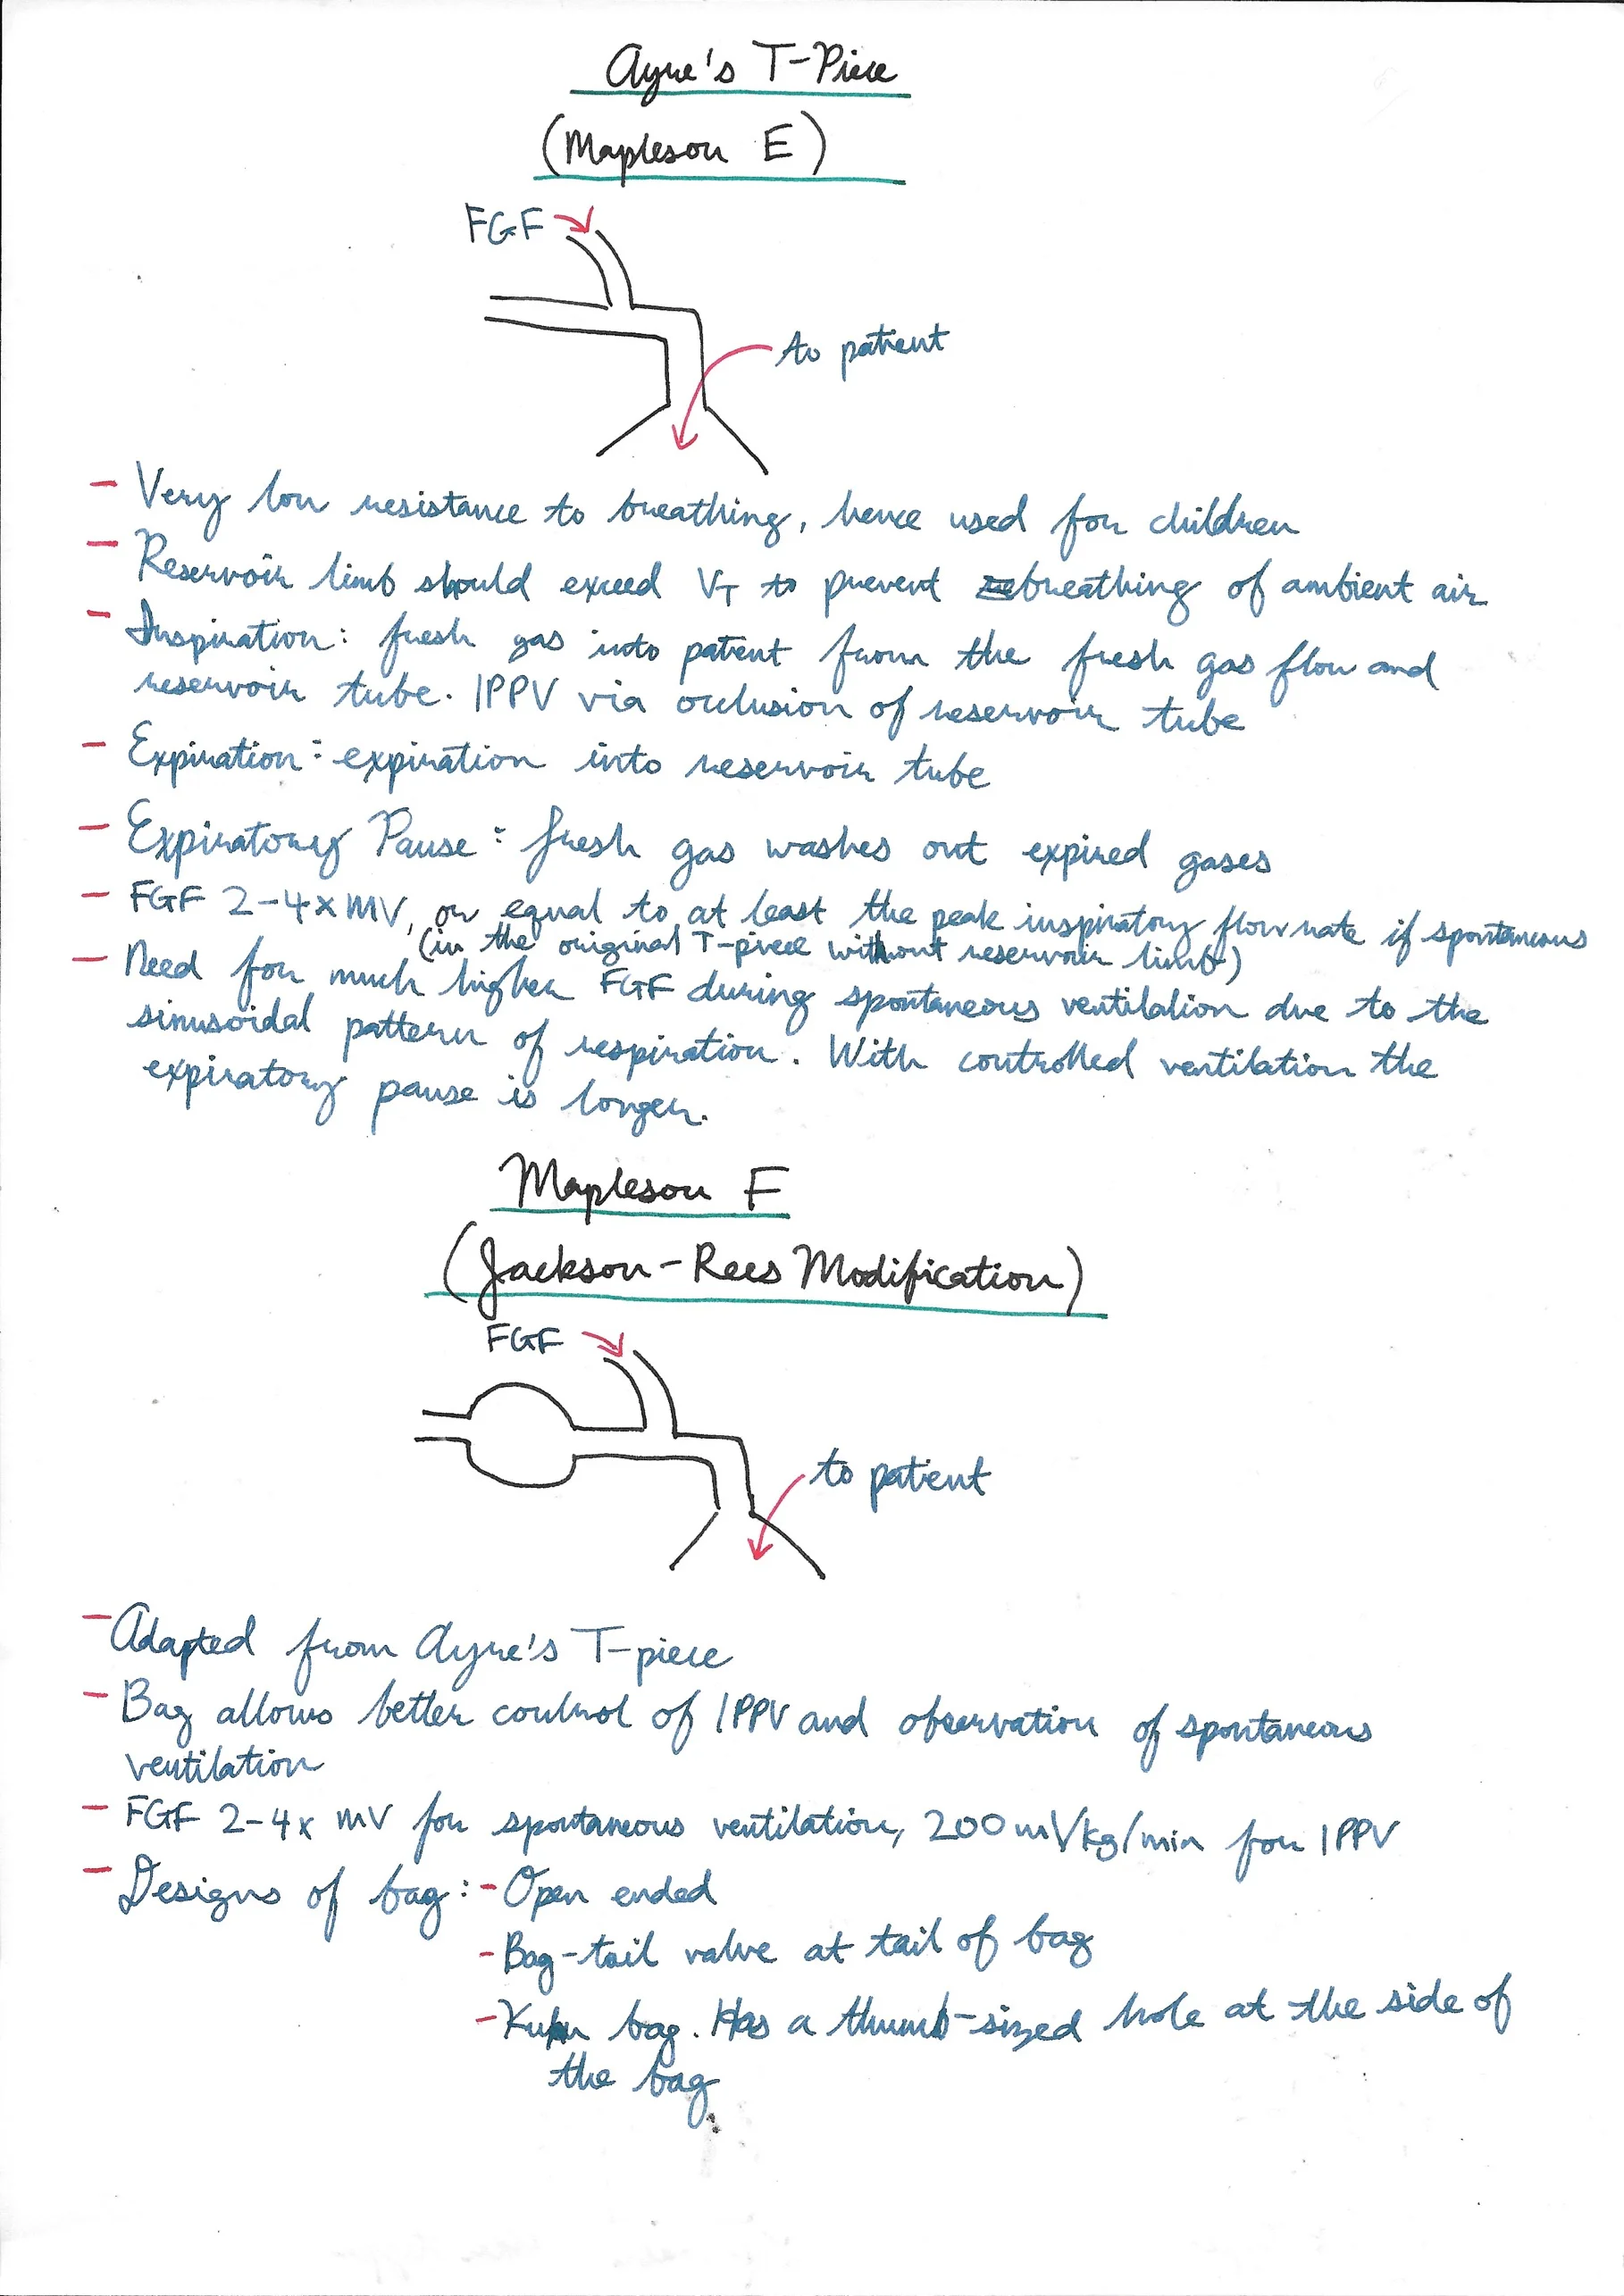 Ayre's T-Piece
(Mapleson E)
FGF
to patient
- Very low resistance to breathing, hence used for children
- Reservoir limb should exceed VT to prevent breathing of ambient air
- Inspiration: fresh gas into patient from the fresh gas flow and
reservoir tube. IPPV via occlusion of reservoir tube
- Expiration: expiration into reservoir tube
- Expiratory Pause: fresh gas washes out expired gases
- FGF 2-4x MV, or equal to at least the peak inspiratory flow rate if spontaneous
(in the original T-piece without reservoir limb)
- Need for much higher FGF during spontaneous ventilation due to the
sinusoidal pattern of respiration. With controlled ventilation the
expiratory pause is longer.
Mapleson F
(Jackson-Rees Modification)
FGF
to patient
- Adapted from Ayre's T-piece
- Bag allows better control of IPPV and observation of spontaneous
ventilation
- FGF 2-4x MV for spontaneous ventilation, 200 ml/kg/min for IPPV
- Designs of bag: - Open ended
- Bag-tail valve at tail of bag
- Kuhn bag. Has a thumb-sized hole at the side of
the bag